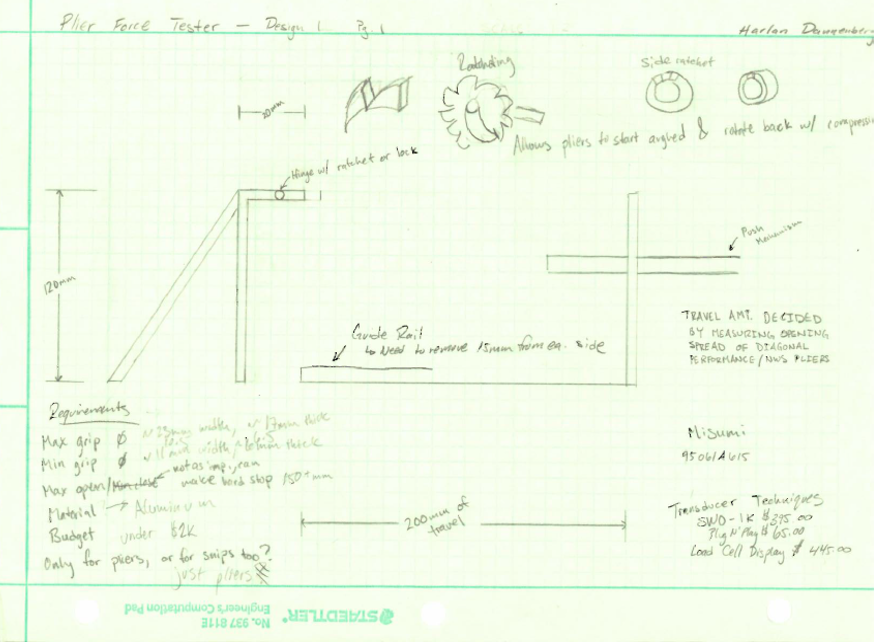 Plier Force Tester - Design 1 Pg. 1
Harlan Dannenberg
Ratcheting
Side ratchet
Allows pliers to start angled & rotate back w/ compression
20mm
Hinge w/ ratchet or lock
Push
Mechanism
120mm
TRAVEL AMT. DECIDED
BY MEASURING OPENING
SPREAD OF DIAGONAL
PERFORMANCE/NWS PLIERS
Guide Rail
↳ Need to remove 15mm from ea. side
Requirements
Max grip Ø ~ 23mm width, ~ 17mm thick
Min grip Ø ~ 11 mm width, thick
Max open/Min close ← not as imp., can
make hard stop 150+mm
Material → Aluminum
Budget under $2K
Only for pliers, or for snips too?
just pliers
200mm of
travel
Misumi
95061A615
Transducer Techniques
SWO-1K $395.00
Plug N' Play $65.00
Load Cell Display $ 445.00
STAEDTLER®
No. 937 811E
Engineer's Computation Pad